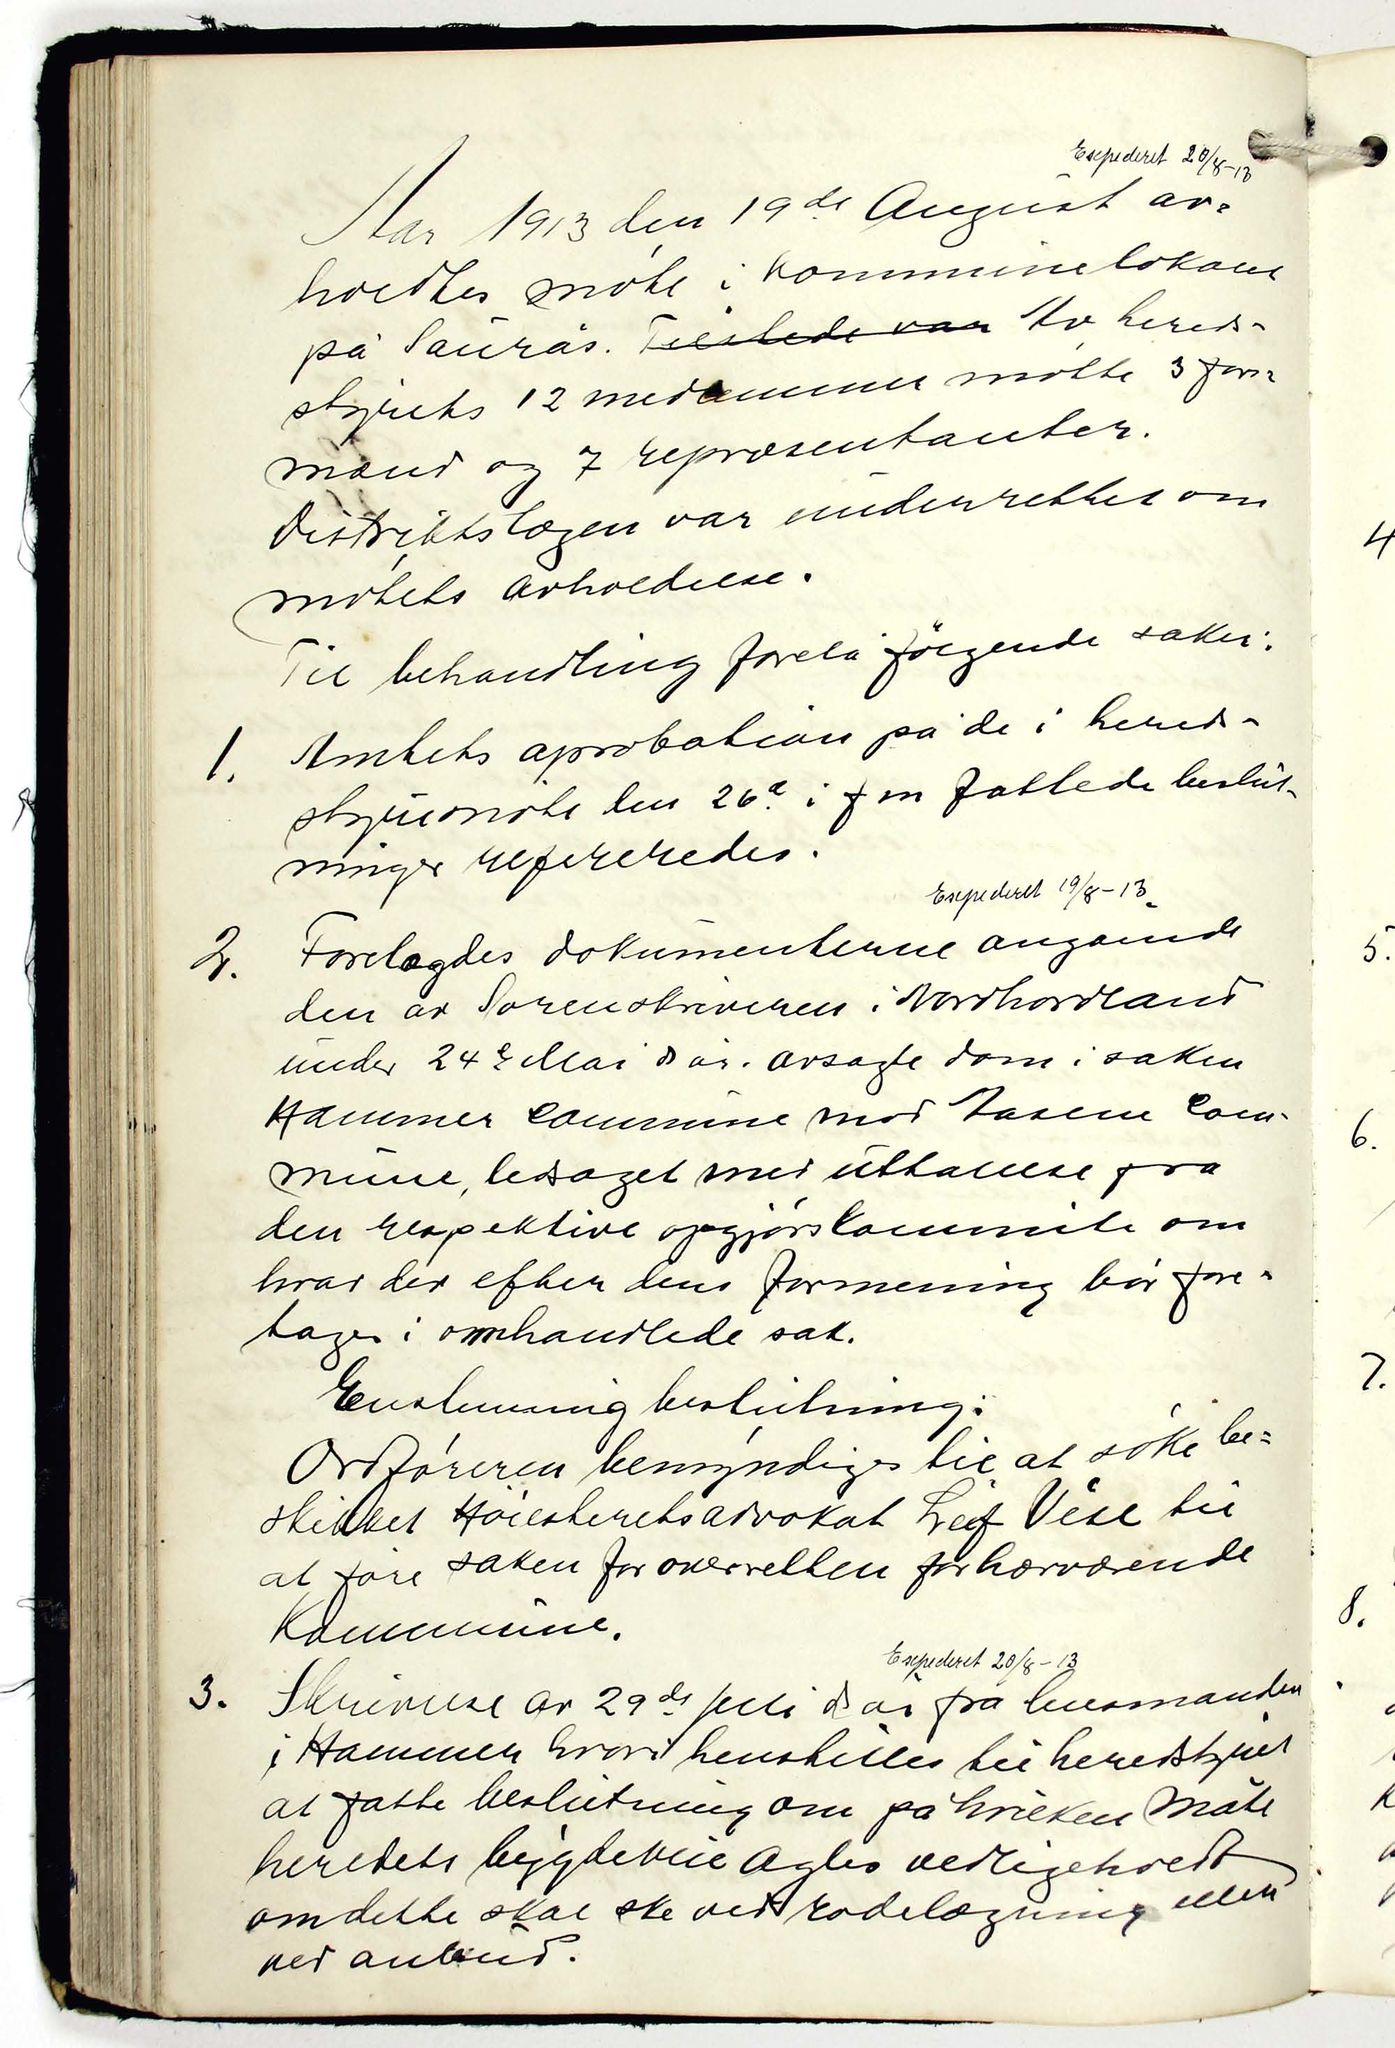 Expederet 20/8-13
Aar 1913 den 19de August av-
holdtes møte i Kommunelokalet
på Saurås. Tilstede var Av hereds-
styrets 12 medlemmer møtte 3 for-
mænd og 7 repræsentanter.
Distriktslægen var underrettet om
møtets avholdelse.
Til behandling forelå følgende saker:
1. Amtets aprobation på de i hereds-
styremøte den 26de i f m fattede beslut-
ninger refereredes.
Expederet 19/8-13
2. Forelægdes dokumenterne angående
den av Sorenskriveren i Nordhordland
under 24de Mai d år. avsagte dom i saken
Hammer Commune mod Aasene Com-
mune, ledsaget med uttalelse fra
den respektive opgjørskommite om
hvad der efter dens formening bør fore-
tages i omhandlede sak.
Enstemmig beslutning:
Ordføreren bemyndiges til at søke be-
skikket Høiesteretsadvokat Leif Vise til
at føre saken for overretten for hærværende
Kommune.
Expederet 20/8-13
3. Skrivelse av 29de juli d år fra lensmanden
i Hammer hvori henstilles til heredstyret
at fatte beslutning om på hvilken måte
heredets bygdeveie agtes vedligeholdt
om dette skal ske ved rodelægning eller
ved anbud.
4
5.
6.
7.
8.